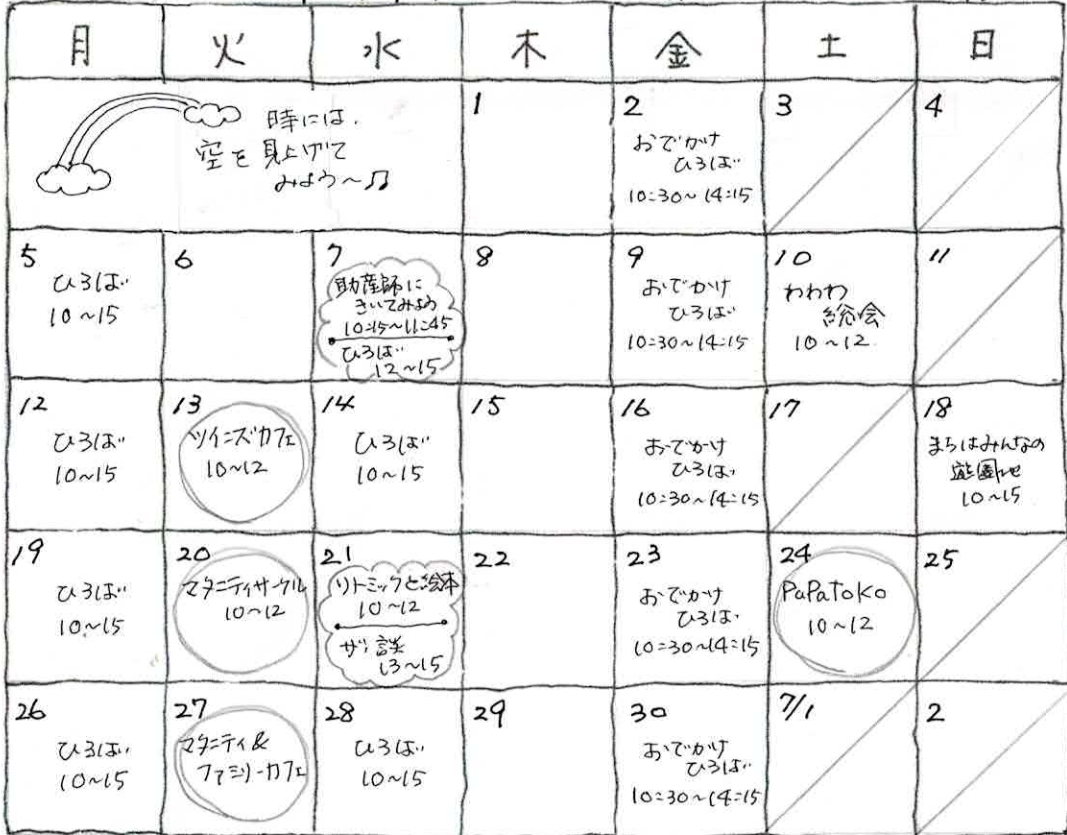 月 火 水 木 金 土 日
時には、
空を見上げて
みよう～♫
1
2
おでかけ
ひろば
10:30～14:15
3
4
5
ひろば
10～15
6
7
助産師に
きいてみよう
10:15～11:45
ひろば
12～15
8
9
おでかけ
ひろば
10:30～14:15
10
わわわ
総会
10～12
11
12
ひろば
10～15
13
ツインズカフェ
10～12
14
ひろば
10～15
15
16
おでかけ
ひろば
10:30～14:15
17
18
まちはみんなの
遊園地
10～15
19
ひろば
10～15
20
マタニティサークル
10～12
21
リトミックと絵本
10～12
ザ・談
13～15
22
23
おでかけ
ひろば
10:30～14:15
24
PaPaToKo
10～12
25
26
ひろば
10～15
27
マタニティ&
ファミリーカフェ
28
ひろば
10～15
29
30
おでかけ
ひろば
10:30～14:15
7/1
2